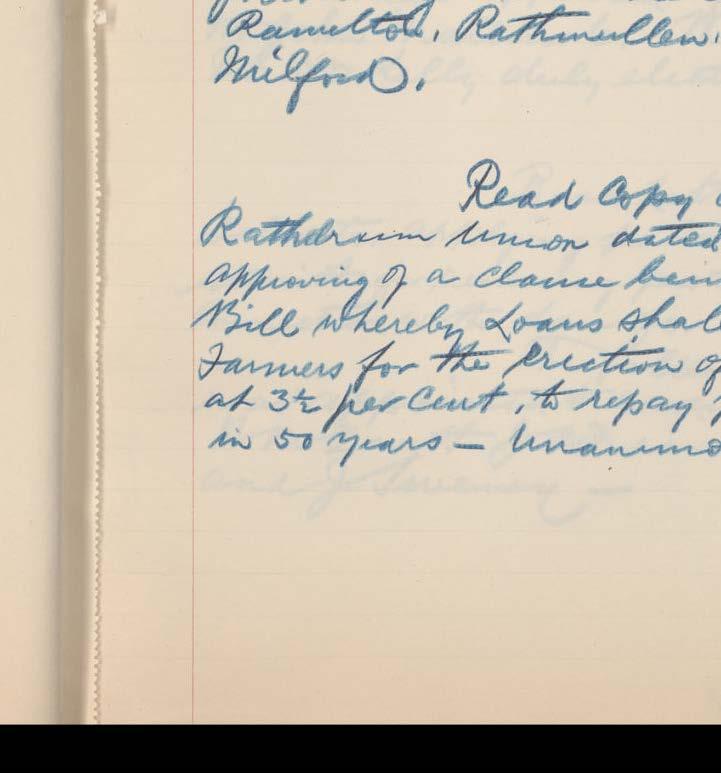 Ramelton, Rathmullen.
Milford.
Read Copy
Rathdrum Union dated
approving of a clause bein
Bill whereby Loans shal
Farmers for the Erection of
at 3½ per Cent, to repay
in 50 years — Unanimo